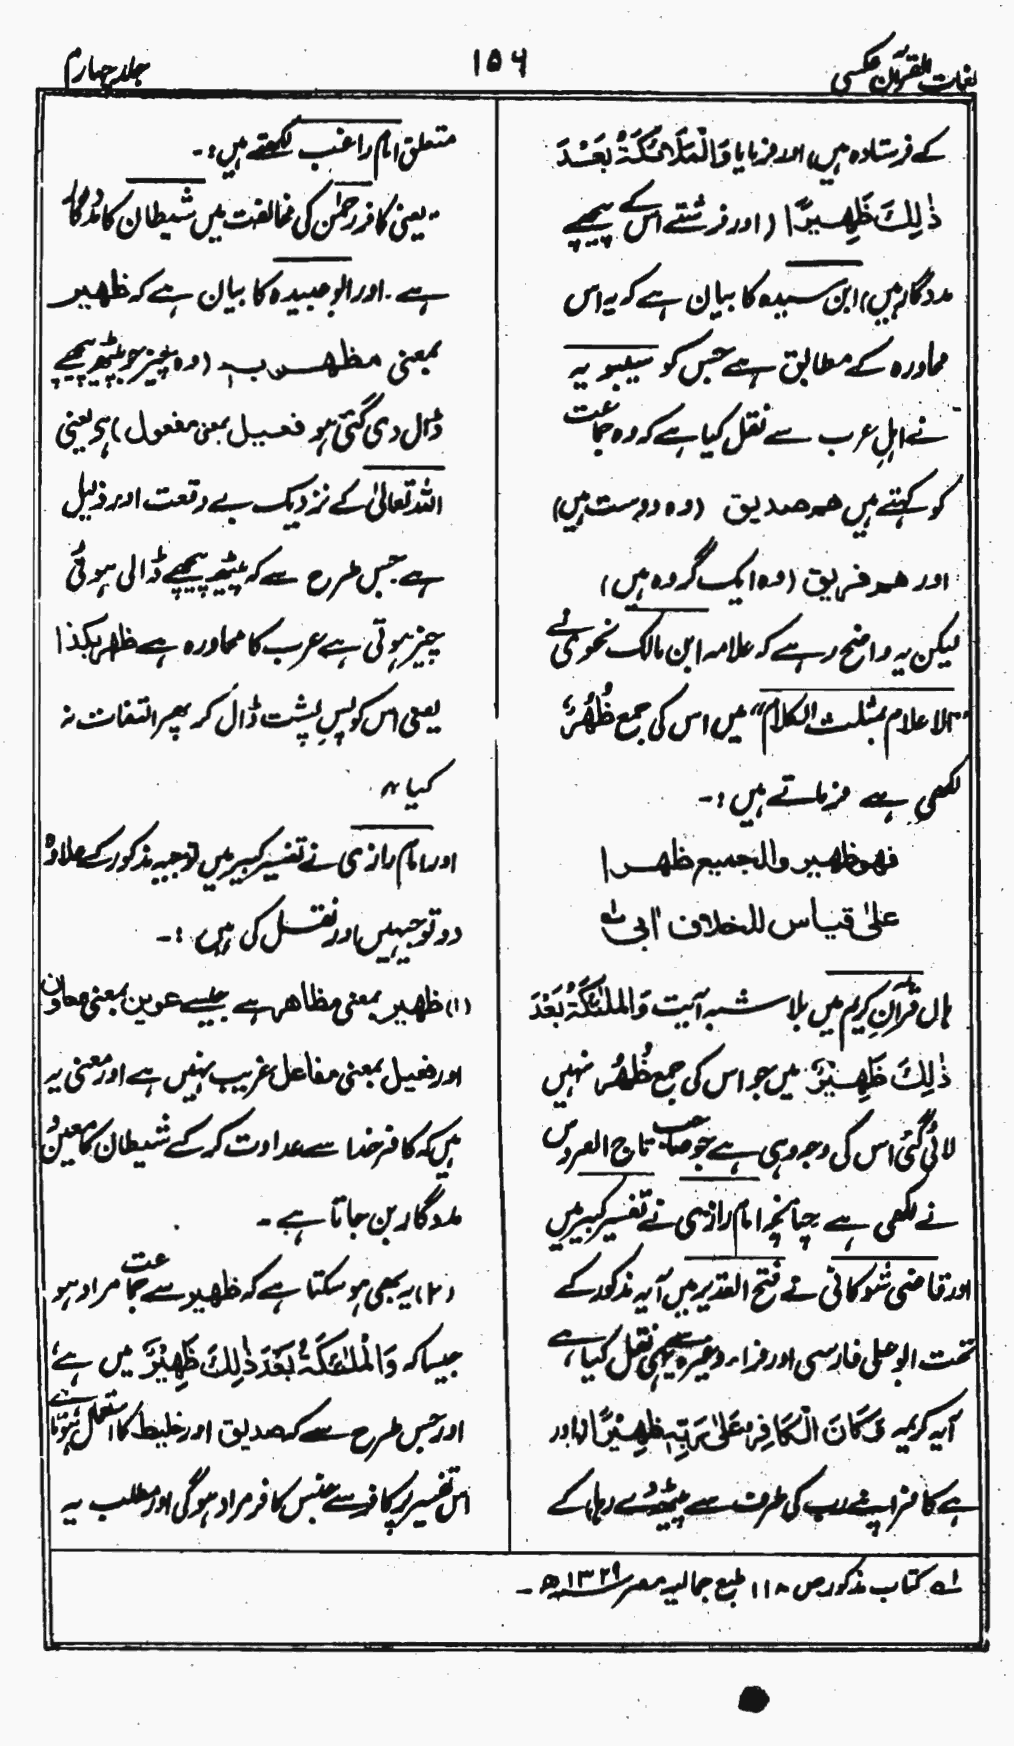 لغات القرآن عکسی
۱۵۶
جلد چہارم
کے فرستادہ ہیں اور فرمایا وَالْمَلَائِكَةُ بَعْدَ
ذٰلِكَ ظَهِیْرًا (اور فرشتے اس کے پیچھے
مددگار ہیں) ابن سیدہ کا بیان ہے کہ یہ اس
محاورہ کے مطابق ہے جس کو سیبویہ
نے اہلِ عرب سے نقل کیا ہے کہ وہ جماعت
کو کہتے ہیں هم صدیق (وہ دوست ہیں)
اور هم فریق (وہ ایک گروہ ہیں)
لیکن یہ واضح رہے کہ علامہ ابن مالک نحوی نے
"الاعلام بمثلث الکلام" میں اس کی جمع ظُهُرٌ
لکھی ہے فرماتے ہیں :۔
فهو ظهیر والجمیع ظهرا
علیٰ قیاس للخلاف ابیٰ لہ
ہاں قرآنِ کریم میں بلا شبہ آیت وَالْمَلٰئِكَةُ بَعْدَ
ذٰلِكَ ظَهِیْرٌ میں جو اس کی جمع ظُهُر نہیں
لائی گئی اس کی وجہ وہی ہے جو صاحب تاج العروس
نے لکھی ہے چنانچہ امام رازی نے تفسیر کبیر میں
اور قاضی شوکانی نے فتح القدیر میں آیہ مذکور کے
تحت ابو علی فارسی اور فراء وغیرہ سے یہی نقل کیا ہے،
آیہ کریمہ وَكَانَ الْكَافِرُ عَلٰی رَبِّهٖ ظَهِیْرًا (اور
ہے کافر اپنے رب کی طرف سے پیٹھ دے رہا) کے
متعلق امام راغب لکھتے ہیں :۔
"یعنی کافر رحمٰن کی مخالفت میں شیطان کا مددگار
ہے۔ اور ابو عبیدہ کا بیان ہے کہ ظهیر
بمعنی مظهر به (وہ چیز جو پیٹھ پیچھے
ڈال دی گئی ہو فعیل بمعنی مفعول) ہے یعنی
اللہ تعالیٰ کے نزدیک بے وقعت اور ذلیل
ہے جس طرح سے کہ پیٹھ پیچھے ڈالی ہوئی
چیز ہوتی ہے عرب کا محاورہ ہے ظهر بکذا
یعنی اس کو پسِ پشت ڈال کر پھر التفات نہ
کیا"
اور امام رازی نے تفسیر کبیر میں توجیہ مذکور کے علاوہ
دو توجیہیں اور نقل کی ہیں :۔
(۱) ظهیر بمعنی مظاهر ہے جیسے عوین بمعنی معاون
اور فعیل بمعنی مفاعل غریب نہیں ہے اور معنی یہ
ہیں کہ کافر خدا سے عداوت کر کے شیطان کا معین و
مددگار بن جاتا ہے۔
(۲) یہ بھی ہو سکتا ہے کہ ظهیر سے جماعت مراد ہو
جیسا کہ وَالْمَلٰئِكَةُ بَعْدَ ذٰلِكَ ظَهِیْرٌ میں ہے،
اور جس طرح سے کہ صدیق اور خلیط کا استعمال ہوتا ہے
اس تفسیر پر کافر سے جنس کافر مراد ہوگی اور مطلب یہ
لہ کتاب مذکور ص ۱۱۸ طبع جمالیہ مصر ۱۳۲۹ھ۔